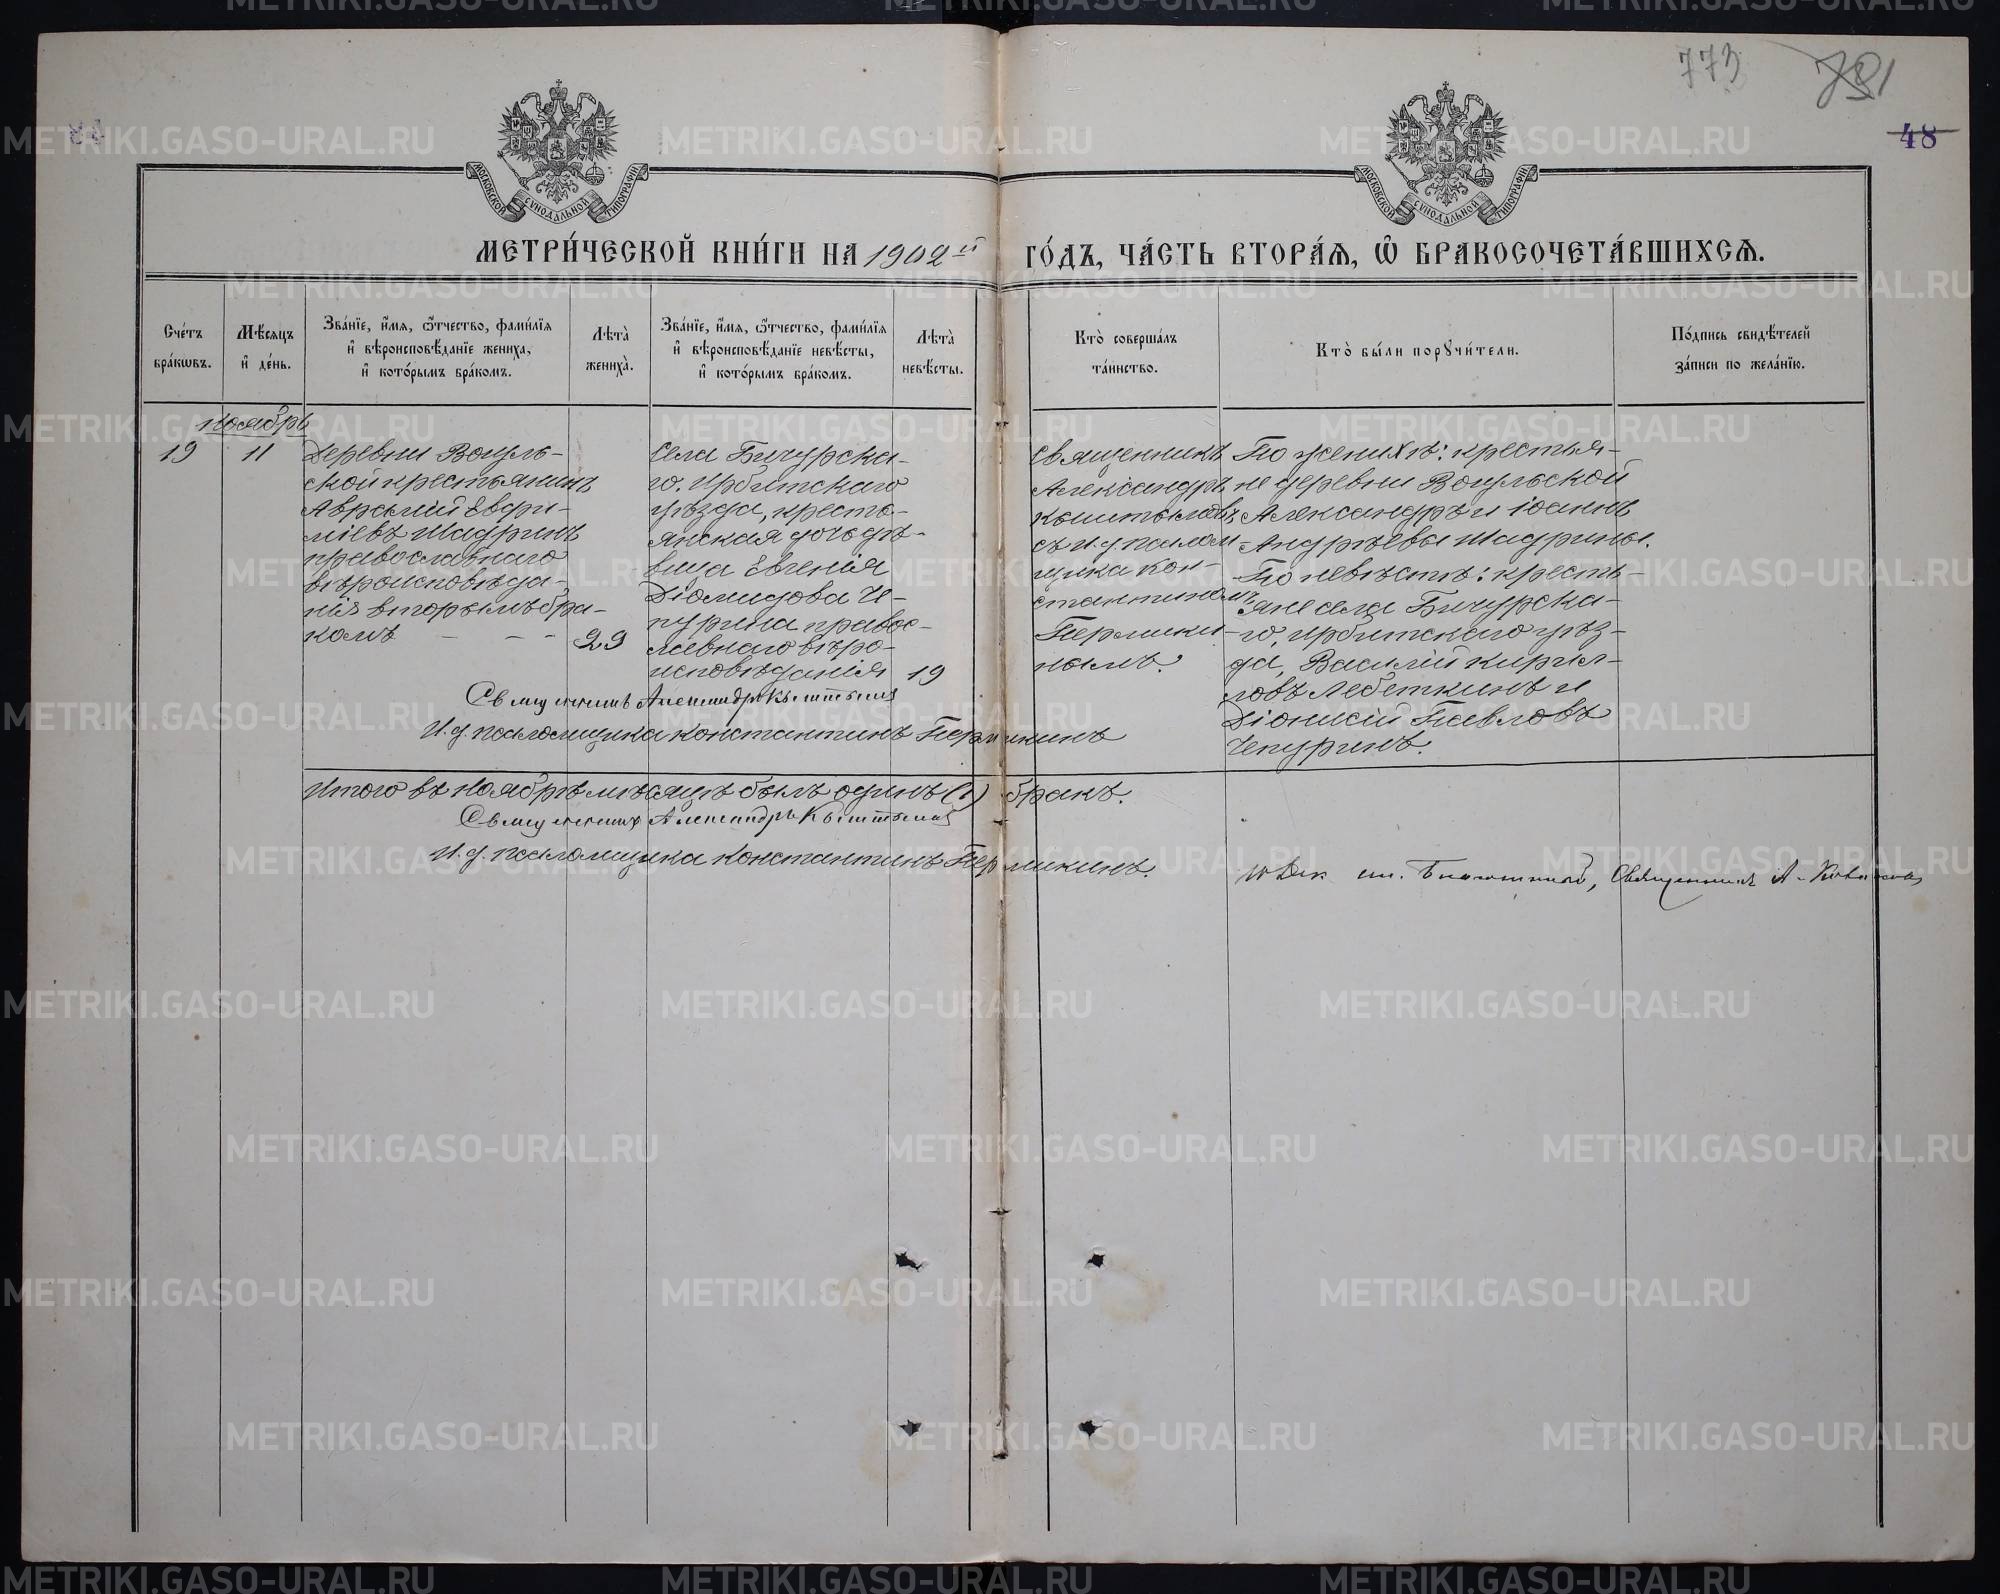 773
781
48
МОСКОВСКОЙ СѴНОДАЛЬНОЙ ТИПОГРАФІИ
МОСКОВСКОЙ СѴНОДАЛЬНОЙ ТИПОГРАФІИ
МЕТРИ́ЧЕСКОЙ КНИ́ГИ НА 1902й ГО́ДЪ, ЧА́СТЬ ВТОРА́Я, Ѽ БРАКОСОЧЕТА́ВШИХСЯ.
Сче́тъ
бра́кѡвъ.
Мѣ́сяцъ
и҆ де́нь.
Зва́нїе, и҆́мя, ѻ҆́тчество, фами́лїя
и҆ вѣроисповѣ́данїе жениха̀,
и҆ кото́рымъ бра́комъ.
Лѣта̀
жениха̀.
Зва́нїе, и҆́мя, ѻ҆́тчество, фами́лїя
и҆ вѣроисповѣ́данїе невѣ́сты,
и҆ кото́рымъ бра́комъ.
Лѣта̀
невѣ́сты.
Кто̀ соверша́лъ
та́инство.
Кто̀ бы́ли порꙋчи́тели.
По́дпись свидѣ́телей
за́писи по жела́нїю.
Ноябрь
19
11
Деревни Вогуль-
ской крестьянинъ
Авраамій Евфи-
міевъ Шадринъ
православнаго
вѣроисповѣда-
нія вторымъ бра-
комъ
29
Села Бичурска-
го, Ирбитскаго
уѣзда, кресть-
янская дочь дѣ-
вица Евгенія
Діомидова Че-
пурина правос-
лавнаго вѣро-
исповѣданія
19
Священникъ
Александръ
Кыштымовъ
съ и.д. псалом-
щика Кон-
стантиномъ
Пермики-
нымъ.
По женихѣ: крестья-
не деревни Вогульской
Александръ и Іоаннъ
Андреевы Шадрины.
По невѣстѣ: кресть-
яне села Бичурска-
го, Ирбитскаго уѣз-
да, Василій Кирил-
ловъ Лебеткинъ и
Діонисій Павловъ
Чепуринъ.
Священникъ Александръ Кыштымовъ
И.д. псаломщика Константинъ Пермикинъ
Итого въ Ноябрѣ мѣсяцѣ былъ одинъ (1) бракъ.
Священникъ Александръ Кыштымовъ
И.д. псаломщика Константинъ Пермикинъ.
Священникъ А.
METRIKI.GASO-URAL.RU